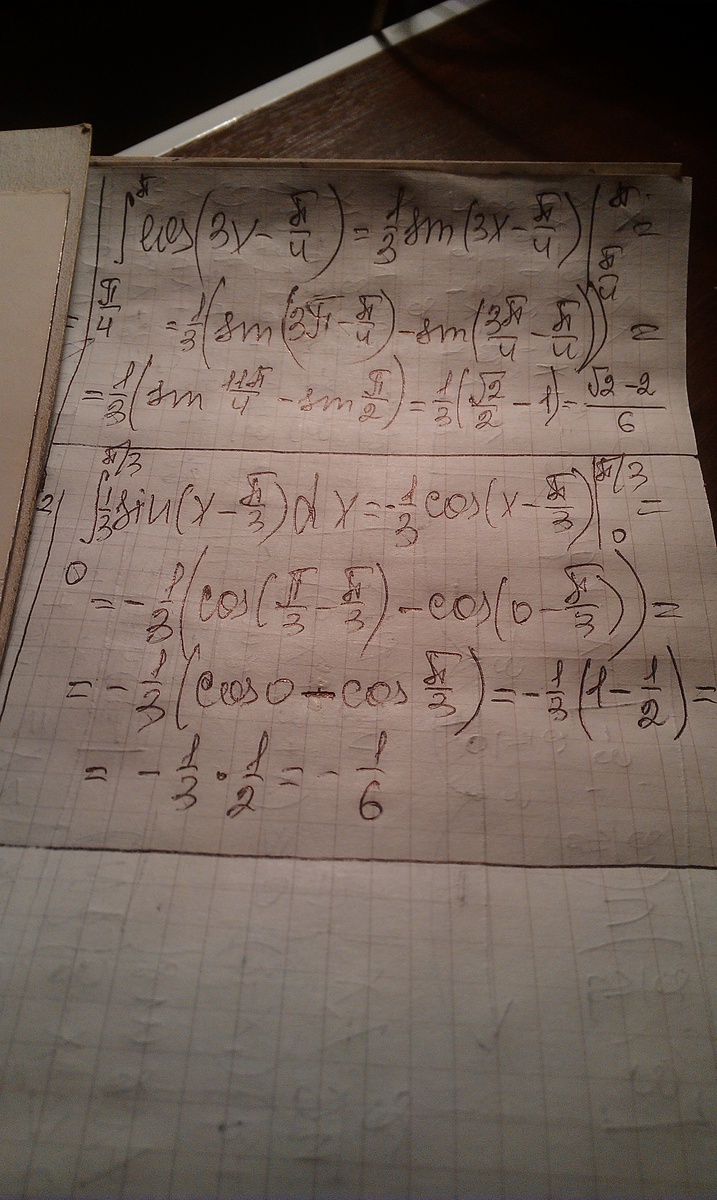 ∫_{π/4}^{π} cos(3x - π/4) = 1/3 sin(3x - π/4) |_{π/4}^{π} =
= 1/3 (sin(3π - π/4) - sin(3π/4 - π/4)) =
= 1/3 (sin 11π/4 - sin π/2) = 1/3 (√2/2 - 1) = (√2 - 2)/6
2) ∫_{0}^{π/3} 1/3 sin(x - π/3) dx = -1/3 cos(x - π/3) |_{0}^{π/3} =
= -1/3 (cos(π/3 - π/3) - cos(0 - π/3)) =
= -1/3 (cos 0 - cos π/3) = -1/3 (1 - 1/2) =
= -1/3 · 1/2 = -1/6